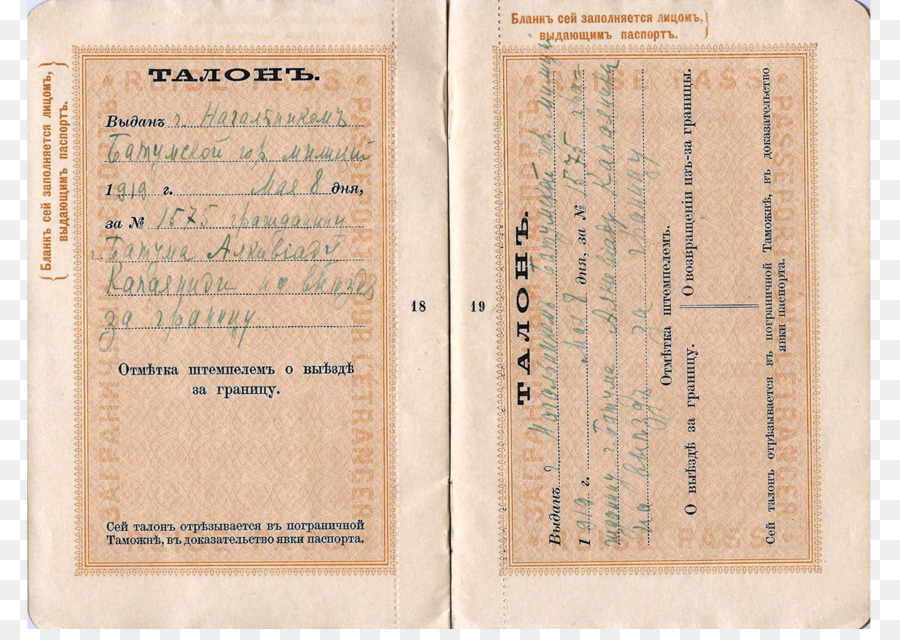 Бланкъ сей заполняется лицомъ,
выдающимъ паспортъ.
ТАЛОНЪ.
Выданъ г. Начальникомъ
Батумской гор. милиціи
1919 г. Мая 8 дня,
за № 1575 гражданину
г. Батума
на выѣздъ
за границу
Отмѣтка штемпелемъ о выѣздѣ
за границу.
Сей талонъ отрѣзывается въ пограничной
Таможнѣ, въ доказательство явки паспорта.
REISE-PASS
PASSEPORT POUR L'ÉTRANGER
18
19
Бланкъ сей заполняется лицомъ,
выдающимъ паспортъ.
ТАЛОНЪ.
Выданъ г. Начальникомъ Батумской гор. милиціи
1919 г. Мая 8 дня, за № 1575 гра-
жданину г. Батума
на выѣздъ за границу
Отмѣтка штемпелемъ.
О выѣздѣ за границу. О возвращеніи изъ-за границы.
Сей талонъ отрѣзывается въ пограничной Таможнѣ, въ доказательство
явки паспорта.